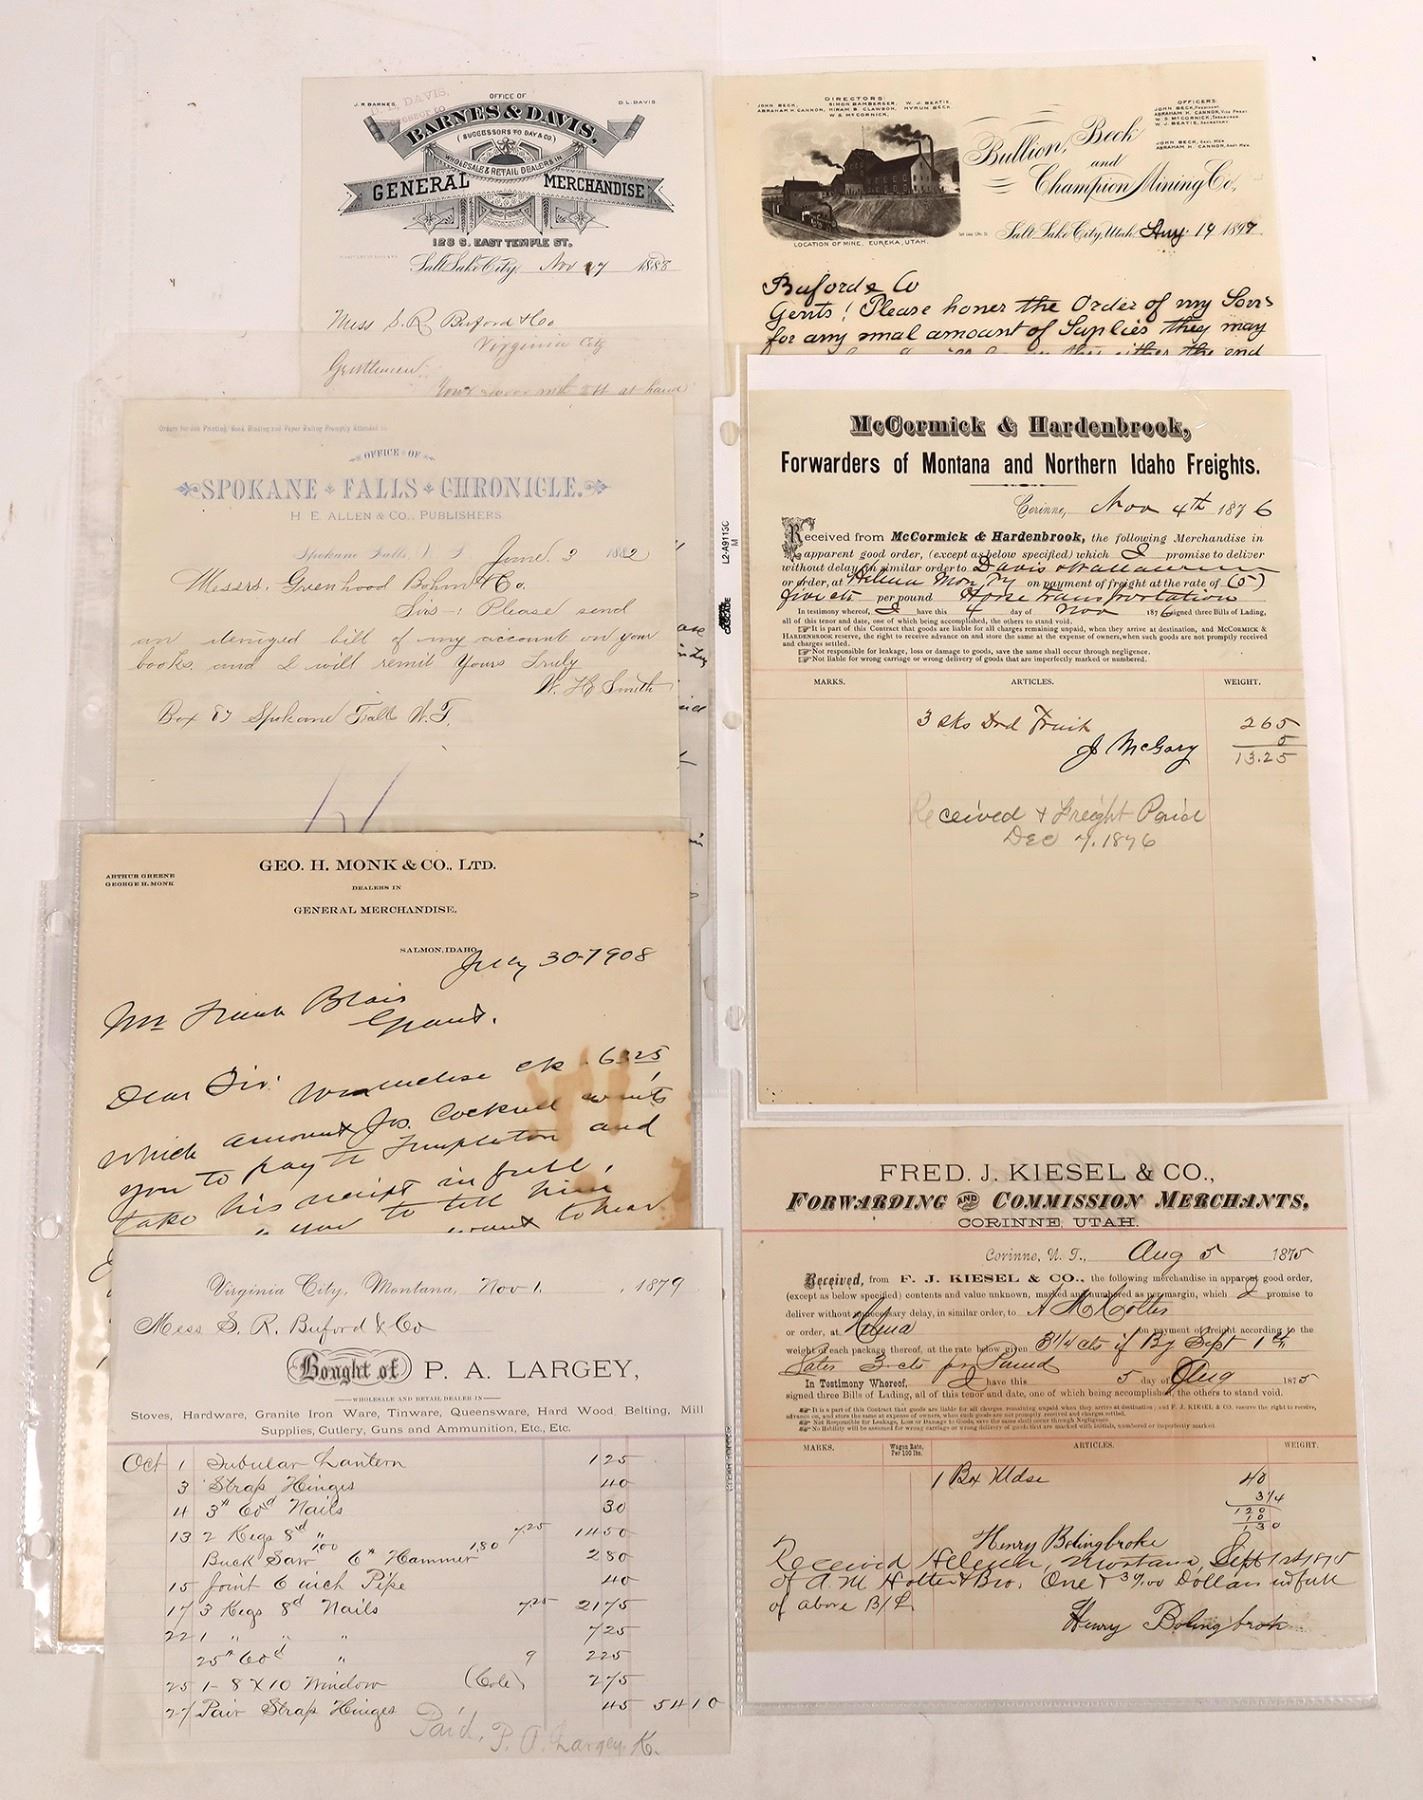 J. R. BARNES
OFFICE OF
D. L. DAVIS
D. L. DAVIS,
BARNES & DAVIS,
(SUCCESSORS TO DAY & CO)
WHOLESALE & RETAIL DEALERS IN
GENERAL MERCHANDISE
128 S. EAST TEMPLE ST.
Salt Lake City, Nov 17 1888
Mess S. R. Buford & Co
Virginia City
Gentlemen:
at hand
DIRECTORS:
JOHN BECK, SIMON BAMBERGER, W. J. BEATIE,
ABRAHAM H. CANNON, HIRAM B. CLAWSON, HYRUM BECK,
W. S. McCORNICK,
OFFICERS:
JOHN BECK, President
ABRAHAM H. CANNON, Vice Prest
W. S. McCORNICK, Treasurer
W. J. BEATIE, Secretary
JOHN BECK, Genl. Mgr.
ABRAHAM H. CANNON, Asst. Mgr.
Bullion, Beck
and
Champion Mining Co,
LOCATION OF MINE, EUREKA, UTAH.
Salt Lake City, Utah. Aug 19 1897
Buford & Co
Gents! Please honer the Order of my Sons
for any smal amount of Suplies they may
either the end
Orders for Job Printing, Book Binding and Paper Ruling Promptly Attended to
OFFICE OF
SPOKANE FALLS CHRONICLE.
H. E. ALLEN & CO., PUBLISHERS
Spokane Falls, W. T. June 3 1882
Messrs. Greenhood Bohm & Co.
Sirs-: Please send
an itemized bill of my account on your
books and I will remit Yours Truly
W. H. Smith
Box 87 Spokane Falls W.T.
L2-A9113C
M
CASCADE
McCormick & Hardenbrook,
Forwarders of Montana and Northern Idaho Freights.
Corinne, Nov 4th 1876
Received from McCormick & Hardenbrook, the following Merchandise in
apparent good order, (except as below specified) which I promise to deliver
without delay in similar order to Davis & Wallace
or order, at Helena Mon Ty on payment of freight at the rate of (5)
five cts per pound Horse transportation
In testimony whereof, I have this 4 day of Nov 1876 signed three Bills of Lading,
all of this tenor and date, one of which being accomplished, the others to stand void.
It is part of this Contract that goods are liable for all charges remaining unpaid, when they arrive at destination, and MCCORMICK &
HARDENBROOK reserve, the right to receive advance on and store the same at the expense of owners, when such goods are not promptly received
and charges settled.
Not responsible for leakage, loss or damage to goods, save the same shall occur through negligence.
Not liable for wrong carriage or wrong delivery of goods that are imperfectly marked or numbered.
MARKS. ARTICLES. WEIGHT.
3 sks Drd Fruit 265
J McGary 5
13.25
Received & Freight Paid
Dec 7, 1876
ARTHUR GREENE
GEORGE H. MONK
GEO. H. MONK & CO., LTD.
DEALERS IN
GENERAL MERCHANDISE.
SALMON, IDAHO, July 30-1908
Mr Frank Blair
Grant.
Dear Sir: We enclose ck 6325
which amount Jos. Cockrell wants
you to pay to Templeton and
take his receipt in full,
you to tell him
want to hear
FRED. J. KIESEL & CO.,
FORWARDING AND COMMISSION MERCHANTS,
CORINNE, UTAH.
Corinne, U. T., Aug 5 1875
Received, from F. J. KIESEL & CO., the following merchandise in apparent good order,
(except as below specified) contents and value unknown, marked and numbered as per margin, which I promise to
deliver without unnecessary delay, in similar order, to A M Holter
or order, at Helena on payment of freight according to the
weight of each package thereof, at the rate below given 3 1/4 cts if By Sept 1st
Later 3 cts per Pound
In Testimony Whereof, I have this 5 day of Aug 1875
signed three Bills of Lading, all of this tenor and date, one of which being accomplished, the others to stand void.
It is a part of this Contract that goods are liable for all charges remaining unpaid when they arrive at destination; and F. J. KIESEL & CO. reserve the right to receive,
advance on, and store the same at the expense of owners, when such goods are not promptly received and charges settled.
Not Responsible for Leakage, Loss or Damage to Goods, save the same shall occur through Negligence.
No liability for wrong carriage or wrong delivery of goods that are marked with initials, numbered or imperfectly marked.
MARKS. Wagon Rate, Per 100 lbs. ARTICLES. WEIGHT.
1 Box Mdse 40
3 1/4
120
10
130
Henry Bolingbroke
Received Helena, Montana, Sept 1st 1875
of A. M. Holter & Bro. One & 3%00 Dollars in full
of above B/L
Henry Bolingbrok
Virginia City, Montana, Nov 1. , 1879
Mess S. R. Buford & Co
Bought of P. A. LARGEY,
WHOLESALE AND RETAIL DEALER IN
Stoves, Hardware, Granite Iron Ware, Tinware, Queensware, Hard Wood, Belting, Mill
Supplies, Cutlery, Guns and Ammunition, Etc., Etc.
Oct 1 Tubular Lantern 125
3 Strap Hinges 40
4 3# 60d Nails 30
13 2 Kegs 8d " 7.25 1450
Buck Saw 100 6# Hammer 180 280
15 Joint 6 inch Pipe 40
17 3 Kegs 8d Nails 725 2175
22 1 " " " 725
25# 60d " 9 225
25 1- 8 X 10 Window (Cole) 275
27 Pair Strap Hinges 45 5410
Paid, P. A. Largey K.